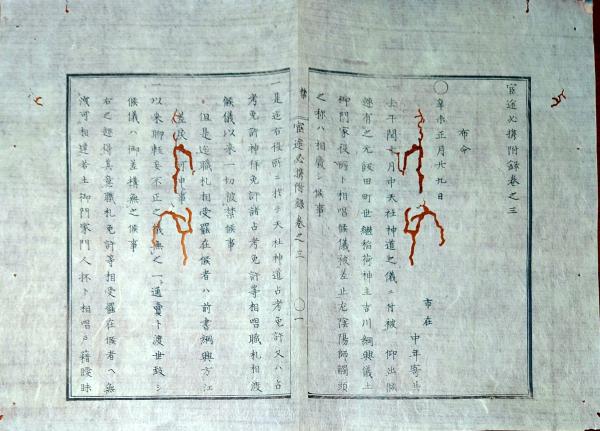 官途必携附録巻之三
布令
○辛未正月廿九日
市在
中年寄共
去午閏十月中天社神道之儀ニ付被 仰出候
趣有之元飯田町世継稲荷神主吉川綱興儀土
御門家役所ト相唱候儀被差止尤陰陽師觸頭
之称ハ相廃シ候事
官途必携附録 巻之三
○一
一是迄右役所ニ於テ天社神道占考免許又ハ占
考免許神拜免許諸占考免許等相唱職札相渡
候儀以来一切被禁候事
但是迄職札相受罷在候者ハ前書綱興方江
差戻可申事
一以来聊軽妄不正之儀無之一通賣卜渡世致シ
候儀ハ御差構無之候事
右之趣得其意職札免許等相受罷在候者ヘ無
洩可相達若土御門家門人抔ト相唱戸籍曖昧